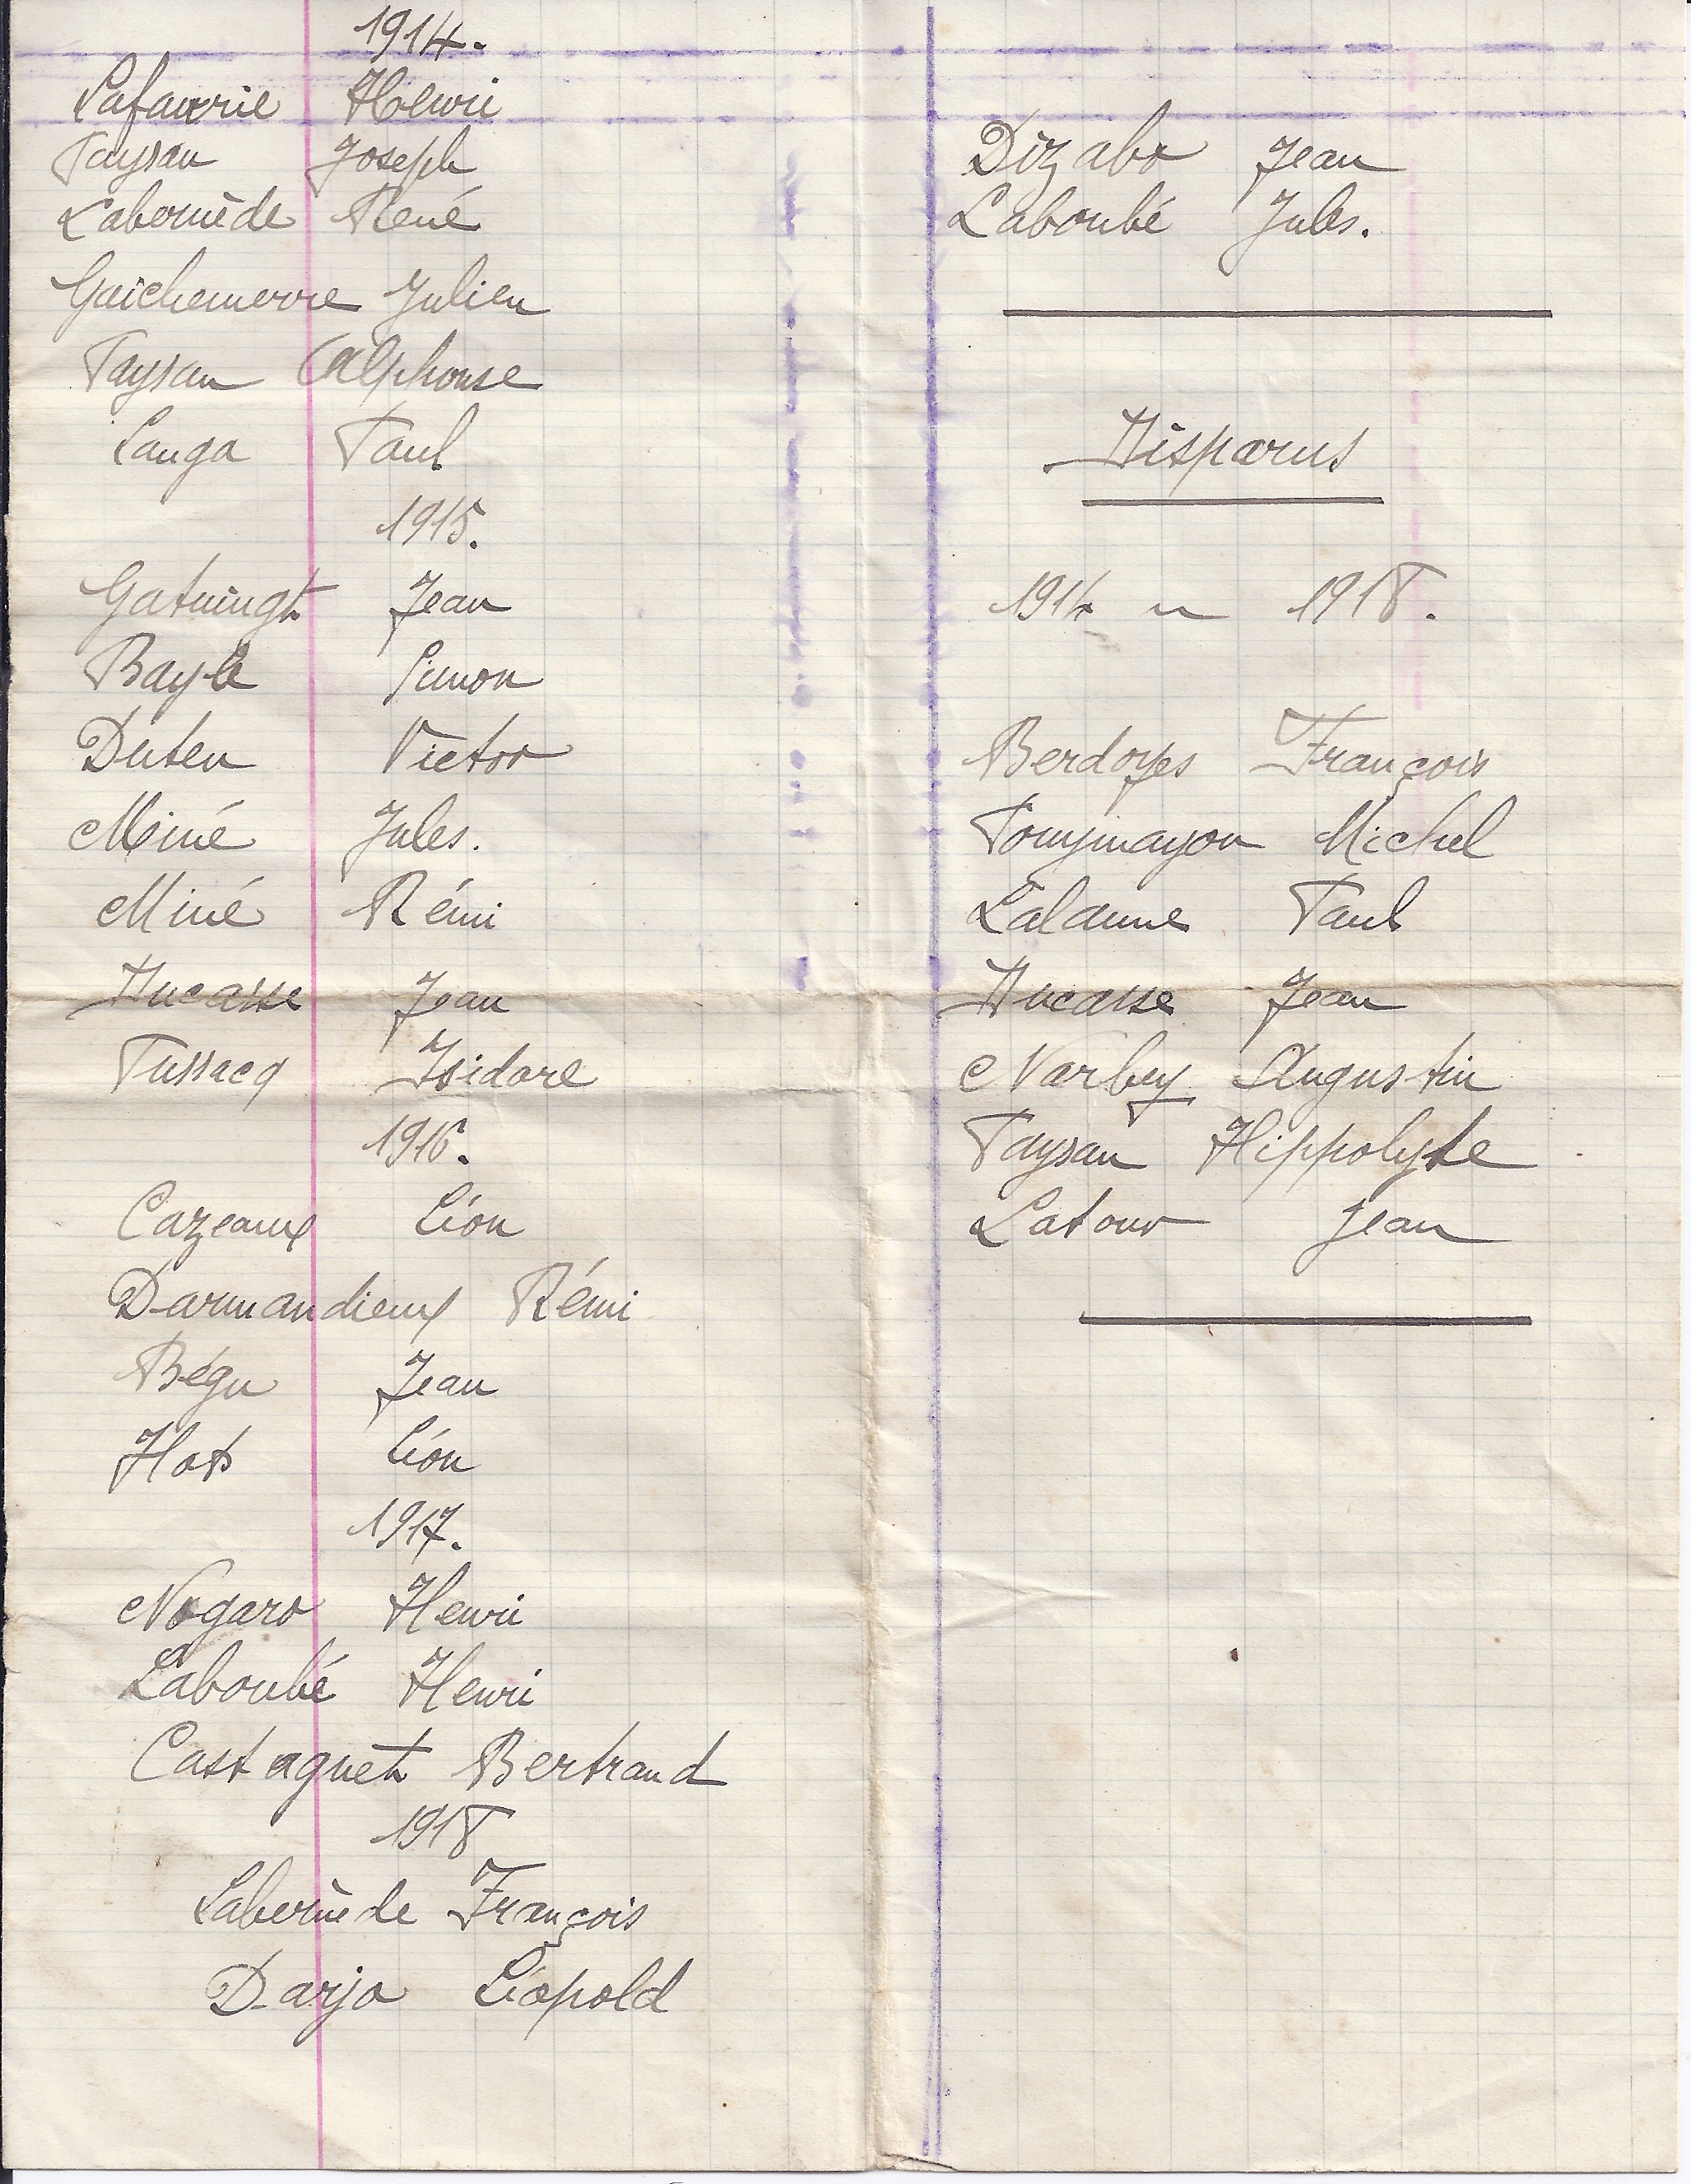 1914.
Lafaurie Henri
Paysan Joseph
Labernède René
Gaichemerre Julien
Paysan Alphonse
Lauga Paul
1915.
Gatuingt Jean
Bayle Simon
Duten Victor
Miné Jules.
Miné Rémi
Ducasse Jean
Tussacq Isidore
1916.
Cazeaux Léon
Darmandieux Rémi
Bégu Jean
Hots Léon
1917.
Nogaro Henri
Laboubé Henri
Castagnet Bertrand
1918
Labernède François
Darjo Léopold
Dizabo Jean
Laboubé Jules.
Disparus
1914 - 1918.
Berdoyes François
Michel
Lalanne Paul
Ducasse Jean
Narbey Augustin
Paysan Hippolyte
Latour Jean